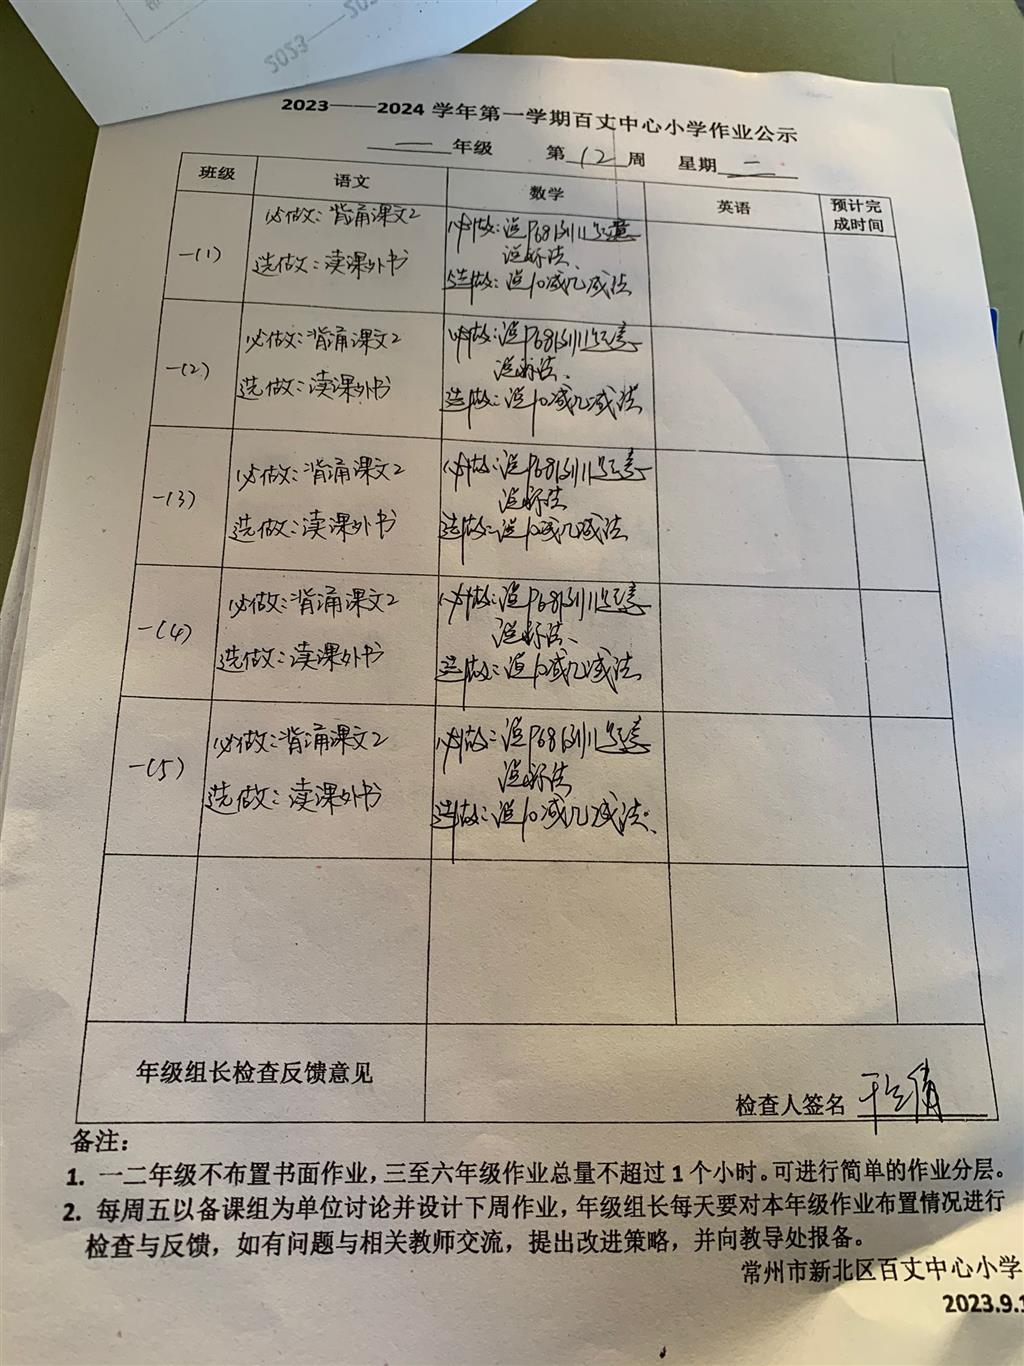 2023——
2023——2024 学年第一学期百丈中心小学作业公示
一 年级 第 12 周 星期 二
班级 语文 数学 英语 预计完成时间
一(1) 必做：背诵课文2 必做：说P68例11题意
说标法、
选做：读课外书 选做：说10减几减法
一(2) 必做：背诵课文2 必做：说P68例11题意
说标法、
选做：读课外书 选做：说10减几减法
一(3) 必做：背诵课文2 必做：说P68例11题意
说标法
选做：读课外书 选做：说10减几减法
一(4) 必做：背诵课文2 必做：说P68例11题意
说标法、
选做：读课外书 选做：说10减几减法
一(5) 必做：背诵课文2 必做：说P68例11题意
说标法
选做：读课外书 选做：说10减几减法、
年级组长检查反馈意见
检查人签名
备注：
1. 一二年级不布置书面作业，三至六年级作业总量不超过 1 个小时。可进行简单的作业分层。
2. 每周五以备课组为单位讨论并设计下周作业，年级组长每天要对本年级作业布置情况进行
检查与反馈，如有问题与相关教师交流，提出改进策略，并向教导处报备。
常州市新北区百丈中心小学
2023.9.1